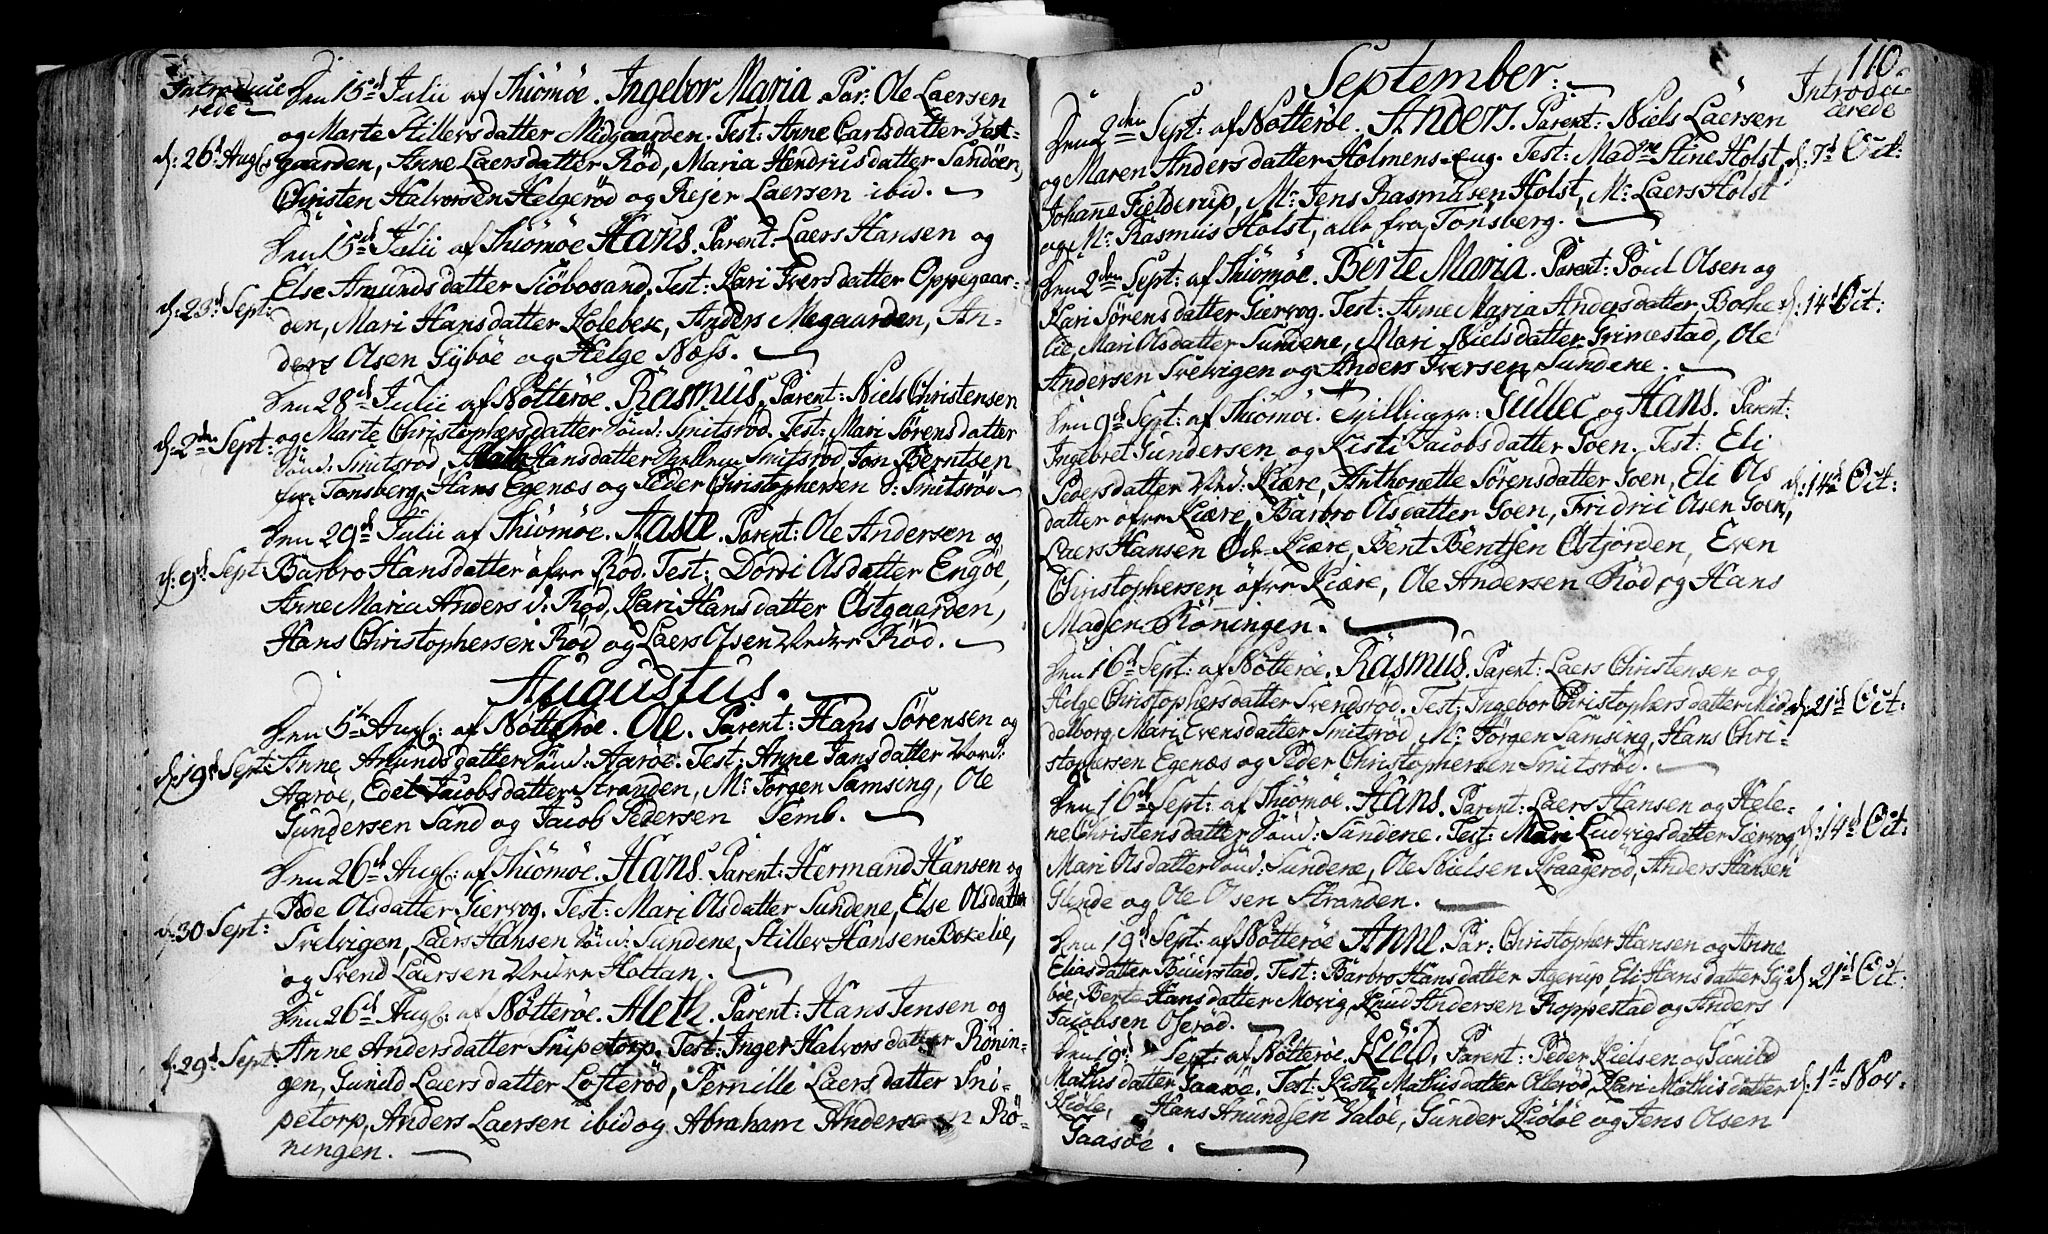 Introduce
rede
Den 15d Julii af Thiömöe. Ingebor Maria. Par: Ole Laersen
og Marte Stillevsdatter Midgaarden. Test: Anne Carlsdatter Vest-
d: 26d Aug: gaarden, Anne Laersdatter Röd, Maria Hendrisdatter Sandöen,
Christen Halvorsen Helgeröd og Rejer Laersen ibid.
Den 15d Julii af Thiömöe Hans. Parent: Laers Hansen og
Else Amundsdatter Siöbosand. Test: Kari Iversdatter Oppegaar-
d: 23d Sept: den, Mari Hansdatter Holebek, Anders Megaarden, An-
ders Olsen Gyböe og Helge Næss.
Den 28d Julii af Nötteröe. Rasmus. Parent: Niels Christensen
d: 2den Sept: og Marte Christophersdatter Smitsröd. Test: Mari Sörensdatter
Smitsröd, Hansdatter Smitsröd Jon Berntsen
Tonsberg, Hans Egenæs og Peder Christophersen d: Smitsröd
Den 29d Julii af Thiömöe. Aaste. Parent: Ole Andersen og
d: 9d Sept Barbro Hansdatter öfre Röd. Test: Dordi Olsdatter Engöe,
Anne Maria Anders d: Röd, Kari Hansdatter Ostgaarden,
Hans Christophersen Röd og Laers Olsen Nedre Röd.
Augustus.
Den 5t Aug: af Nötteröe. Ole. Parent: Hans Sörensen og
d: 19d Sept: Anne Amundsdatter Aaröe. Test: Anne Jansdatter Nord:
Aaröe, Edet Jacobsdatter Stranden, Mr Jörgen Samsing, Ole
Gundersen Sand og Jacob Pedersen Semb.
Den 26d Aug: af Thiömöe. Hans. Parent: Hermand Hansen og
Pede Olsdatter Giervog. Test: Mari Olsdatter Sundene, Else Olsdatter
d: 30 Sept: Svelvigen, Laers Hansen Sundene, Stillev Hansen Bekelie,
og Svend Laersen Nedre Hottan.
Den 26d Aug: af Nötteröe. Aleth. Parent: Hans Jensen og
d: 29d Sept: Anne Andersdatter Snipetorp. Test: Inger Halvorsdatter Rönin-
gen, Gunild Laersdatter Lofteröd, Pernille Laersdatter Sni-
petorp, Anders Laersen ibid og Abraham Andersen Rö-
ningen.
110.
September.
Introdu-
cerede
Den 2den Sept: af Nötteröe. Anders. Parent: Niels Laersen
og Maren Andersdatter Holmens-eng. Test: Madme Stine Holst, d: 7d Oct:
Johanne Fielderup, Mr Jens Rasmusen Holst, Mr Laers Holst
og Mr Rasmus Holst, alle fra Tonsberg.
Den 2den Sept: af Thiömöe. Berte Maria. Parent: Poul Olsen og
Kari Sörensdatter Giervog. Test: Anne Maria Andersdatter Boche- d: 14d Oct:
lie, Mari Olsdatter Sundene, Mari Nielsdatter Grimestad, Ole
Andersen Svelvigen og Anders Iversen Sundene.
Den 9d Sept: af Thiömöe. Tvillinger: Gullec og Hans. Parent:
Ingebret Gundersen og Kisti Jacobsdatter Goen. Test: Eli
Pedersdatter Ned: Kiære, Anthonette Sörensdatter Goen, Eli Ols d: 14d Oct:
datter öfre Kiære, Barbro Olsdatter Goen, Fridric Olsen Goen,
Laers Hansen Kiære, Bent Bentsen Ostjorden, Even
Christophersen öfre Kiære, Ole Andersen Röd og Hans
Madsen Röningen.
Den 16d Sept: af Nötteröe. Rasmus. Parent: Laers Christensen og
Helge Christophersdatter Svendsröd. Test: Ingebor Christophersdatter Mid d: 21d Oct:
delborg, Mari Evensdatter Smitsröd, Mr Jörgen Samsing, Hans Chri-
stophersen Egenæs og Peder Christophersen Smitsröd.
Den 16d Sept: af Thiömöe. Hans. Parent: Laers Hansen og Hele-
ne Christensdatter Sundene. Test: Mari Ludvigsdatter Giervog, d: 14d Oct:
Mari Olsdatter Sundene, Ole Nielsen Kraageröd, Anders Hansen
Glende og Ole Olsen Stranden.
Den 19d Sept: af Nötteröe Anne. Par: Christopher Hansen og Anne
Eliasdatter Buurstad. Test: Barbro Hansdatter Agerup, Eli Hansdatter Gy d: 21d Oct:
böe, Berte Hansdatter Movig, Knud Andersen Roppestad og Anders
Jacobsen Oseröd.
Den 19d Sept: af Nötteröe. Kield. Parent: Peder Kielsen og Gunild
Mathisdatter Gaasöe. Test: Kisti Mathisdatter Olleröd, Kari Mathisdatter d: 1st Nov.
Kiöle, Hans Amundsen Valöe, Gunder Kiölöe og Jens Olsen
Gaasöe.